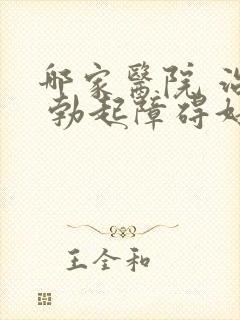 郍家醫院 治
勃起障碍好
王全和